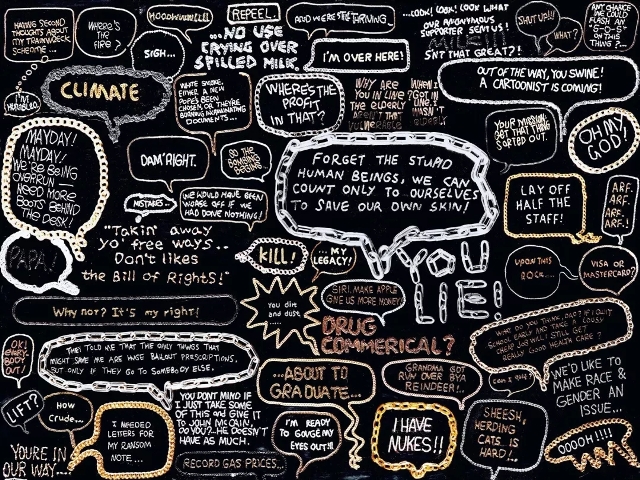 HAVING SECOND
THOUGHTS ABOUT
MY TRAINWRECK
SCHEME...
WHERE'S
THE
FIRE?
HOOOWWWLLLL
REPEEL.
AND WERE STILL THRIVING...
...COOK! LOOK! LOOK WHAT
OUR ANONYMOUS
SUPPORTER SENT US!
ISN'T THAT GREAT?!
SHUT UP!!!
WHAT?
ANY CHANCE
WE COULD
FLASH AN
"S-O-S"
ON THIS
THING?...
SIGH...
...NO USE
CRYING OVER
SPILLED MILK.
I'M OVER HERE!
I'M
HUMBLED.
CLIMATE
WHITE SMOKE.
EITHER A NEW
POPE'S BEEN
CHOSEN, OR THEY'RE
BURNING HUMILIATING
DOCUMENTS...
WHERE'S THE
PROFIT
IN THAT?
WHY ARE
YOU IN LIKE
THE ELDERLY
AREN'T THAT
VULNERABLE
OUT OF THE WAY, YOU SWINE!
A CARTOONIST IS COMING!
MAYDAY!
MAYDAY!
WE'RE BEING
OVERRUN
NEED MORE
BOOTS BEHIND
THE DESK!
DAM'RIGHT.
SO THE
BOMBING
BEGINS
YOUR MISSION:
GET THAT THING
SORTED OUT.
OH MY
GOD!
FORGET THE STUPID
HUMAN BEINGS, WE CAN
COUNT ONLY TO OURSELVES
TO SAVE OUR OWN SKIN!
MISTAKES...
WE WOULD HAVE BEEN
WORSE OFF IF WE
HAD DONE NOTHING!
LAY OFF
HALF THE
STAFF!
ARF.
ARF.
ARF!
PAPA!
"Takin' away
yo' free ways..
Don't likes
the Bill of Rights!"
KILL!
...MY
LEGACY!
YOU
LIE!
UPON THIS
ROCK....
VISA OR
MASTERCARD?
Why not? It's my right!
You dirt
and dust
.....
GIRL MAKE APPLE
GIVE US MORE MONEY!
DRUG
COMMERICAL?
WHAT DO YOU THINK, DAD? IF I QUIT
SCHOOL EARLY AND TAKE A LOUSY
CHEAP JOB WILL I STILL GET
REALLY GOOD HEALTH CARE?
OK!
EVERY-
BODY
OUT!
THEY TOLD ME THAT THE ONLY THINGS THAT
MIGHT SAVE ME ARE HUGE BAILOUT PRESCRIPTIONS.
BUT ONLY IF THEY GO TO SOMEBODY ELSE.
...ABOUT TO
GRADUATE...
GRANDMA GOT
RUN OVER BYA
REINDEER!..
CAN I STAY?
WE'D LIKE TO
MAKE RACE &
GENDER AN
ISSUE...
LIFT?
HOW
CRUDE...
I NEEDED
LETTERS FOR
MY RANSOM
NOTE...
YOU DON'T MIND IF
I JUST TAKE SOME
OF THIS and GIVE IT
TO JOHN McCAIN,
DO YOU? HE DOESN'T
HAVE AS MUCH.
I'M READY
TO GOUGE MY
EYES OUT!!!
I HAVE
NUKES!!
SHEESH,
HERDING
CATS IS
HARD!..
OOOOH!!!!
YOU'RE IN
OUR WAY....
RECORD GAS PRICES...